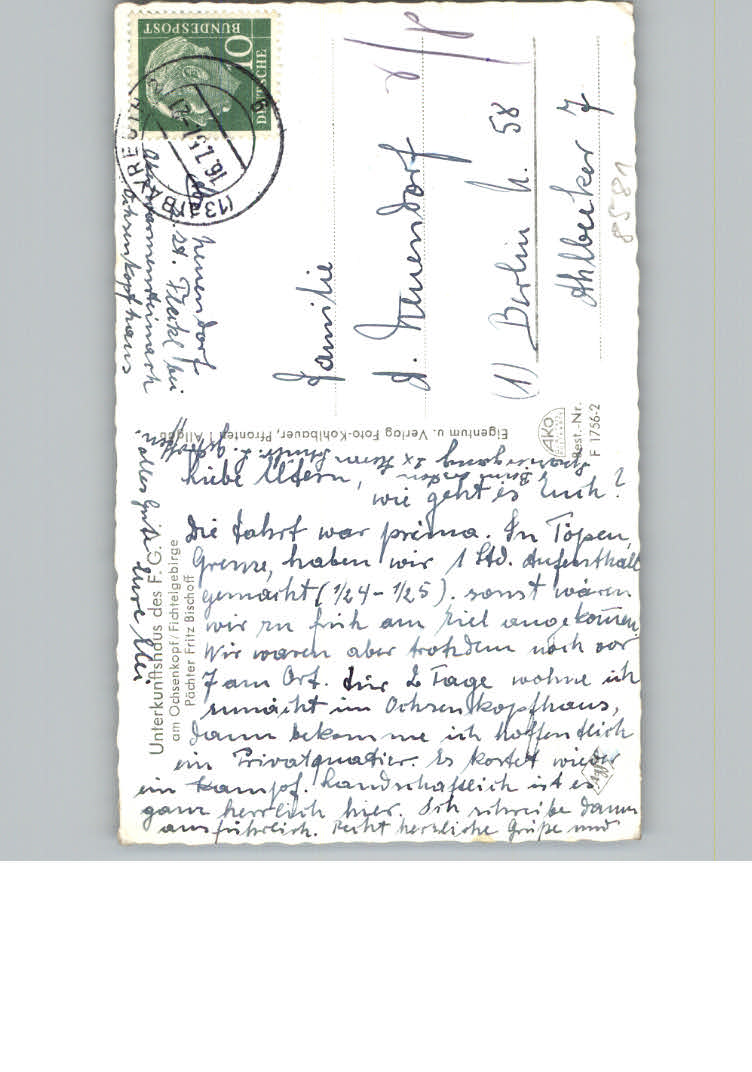 Liebe Eltern,
wie geht es Euch?
Die Fahrt war prima. In Töpen,
Grenze, haben wir 1 Std. Aufenthalt
gemacht (1/2 4 - 1/2 5). sonst wären
wir zu früh am Ziel angekommen.
Wir waren aber trotzdem noch vor
7 am Ort. Für 2 Tage wohne ich
zunächst im Ochsenkopfhaus,
dann bekomme ich hoffentlich
ein Privatquatier. Es kostet wieder
ein Kampf. Landschaftlich ist es
ganz herrlich hier. Ich schreibe dann
ausführlich. Recht herzliche Grüße und
alles Gute Eure
Unterkunftshaus des F. G. V.
am Ochsenkopf/Fichtelgebirge
Pächter Fritz Bischoff
Eigentum u. Verlag Foto-Kohlbauer, Pfronten i. Allgäu
AKO
Best.-Nr.
F 1756-2
Neuendorf
z. Zt. Fleckl bei
Oberwarmensteinach
Ochsenkopfhaus
DEUTSCHE
BUNDESPOST
10
(13a)
Familie
d. Neuendorf
(1) Berlin N. 58
Ahlbecker 7
8581